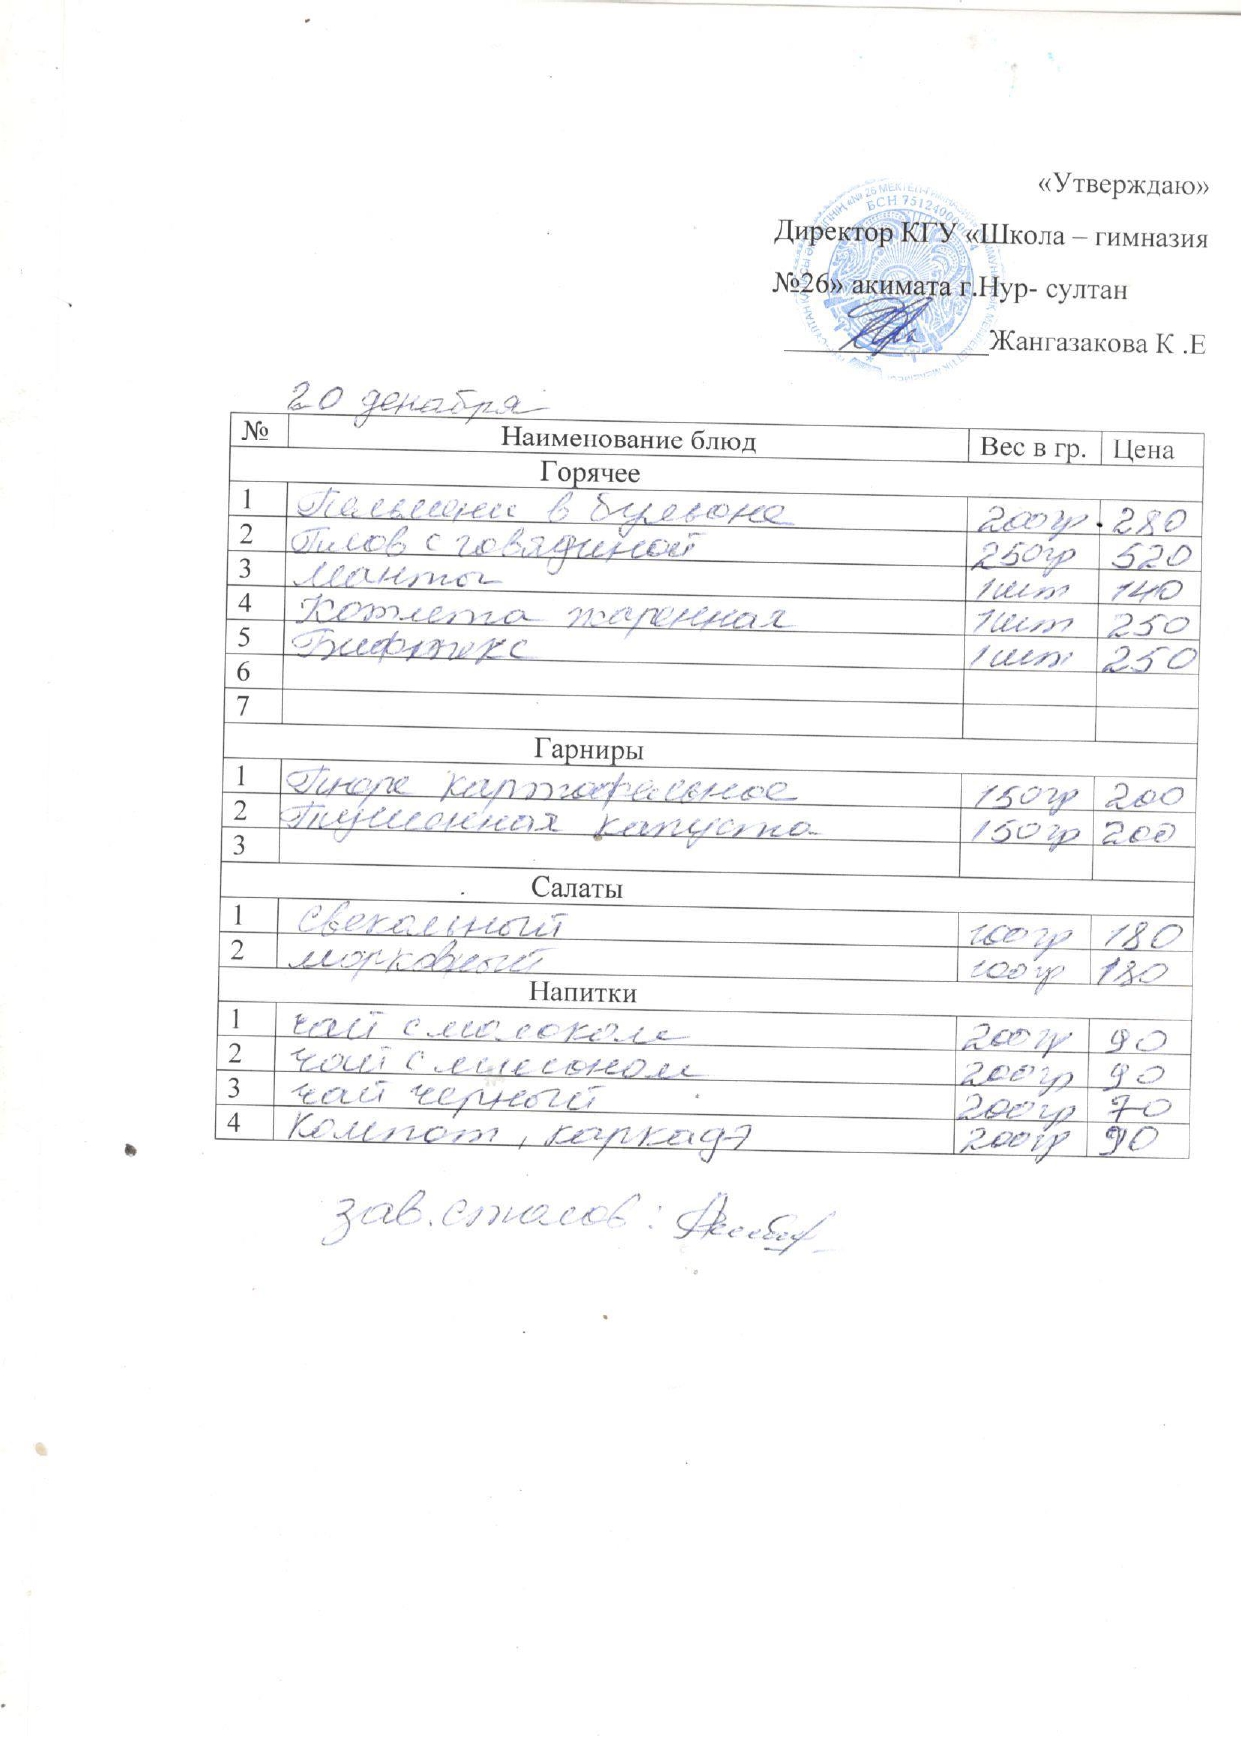 «Утверждаю»
Директор КГУ «Школа – гимназия
№26» акимата г.Нур- султан
_______________Жангазакова К .Е
20 декабря
№ Наименование блюд Вес в гр. Цена
Горячее
1 Пельмени в бульоне 200гр. 280
2 Плов с говядиной 250гр 520
3 Манты 1шт 140
4 Котлета жаренная 1шт 250
5 Бифтекс 1шт 250
6
7
Гарниры
1 Пюре картофельное 150гр 200
2 Тушенная капуста 150гр 200
3
Салаты
1 Свекольный 100гр 180
2 морковный 100гр 180
Напитки
1 чай с молоком 200гр 90
2 чай с лимоном 200гр 90
3 чай черный 200гр 70
4 Компот, каркадэ 200гр 90
зав. столов: